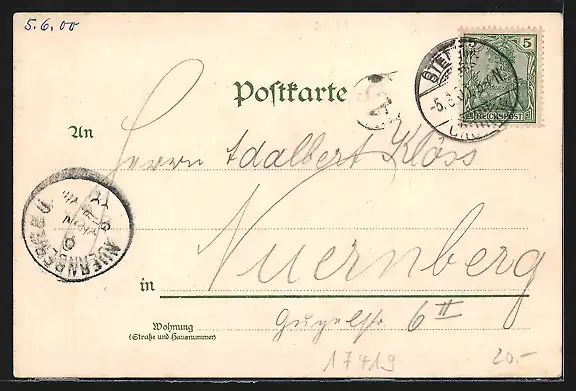 5.6.00
5 5
REICHSPOST
Postkarte
An
Herrn Adalbert Kloss
NUERNBERG
Nuernberg
in
Wohnung
(Straße und Hausnummer)
6 II
17419
20.-